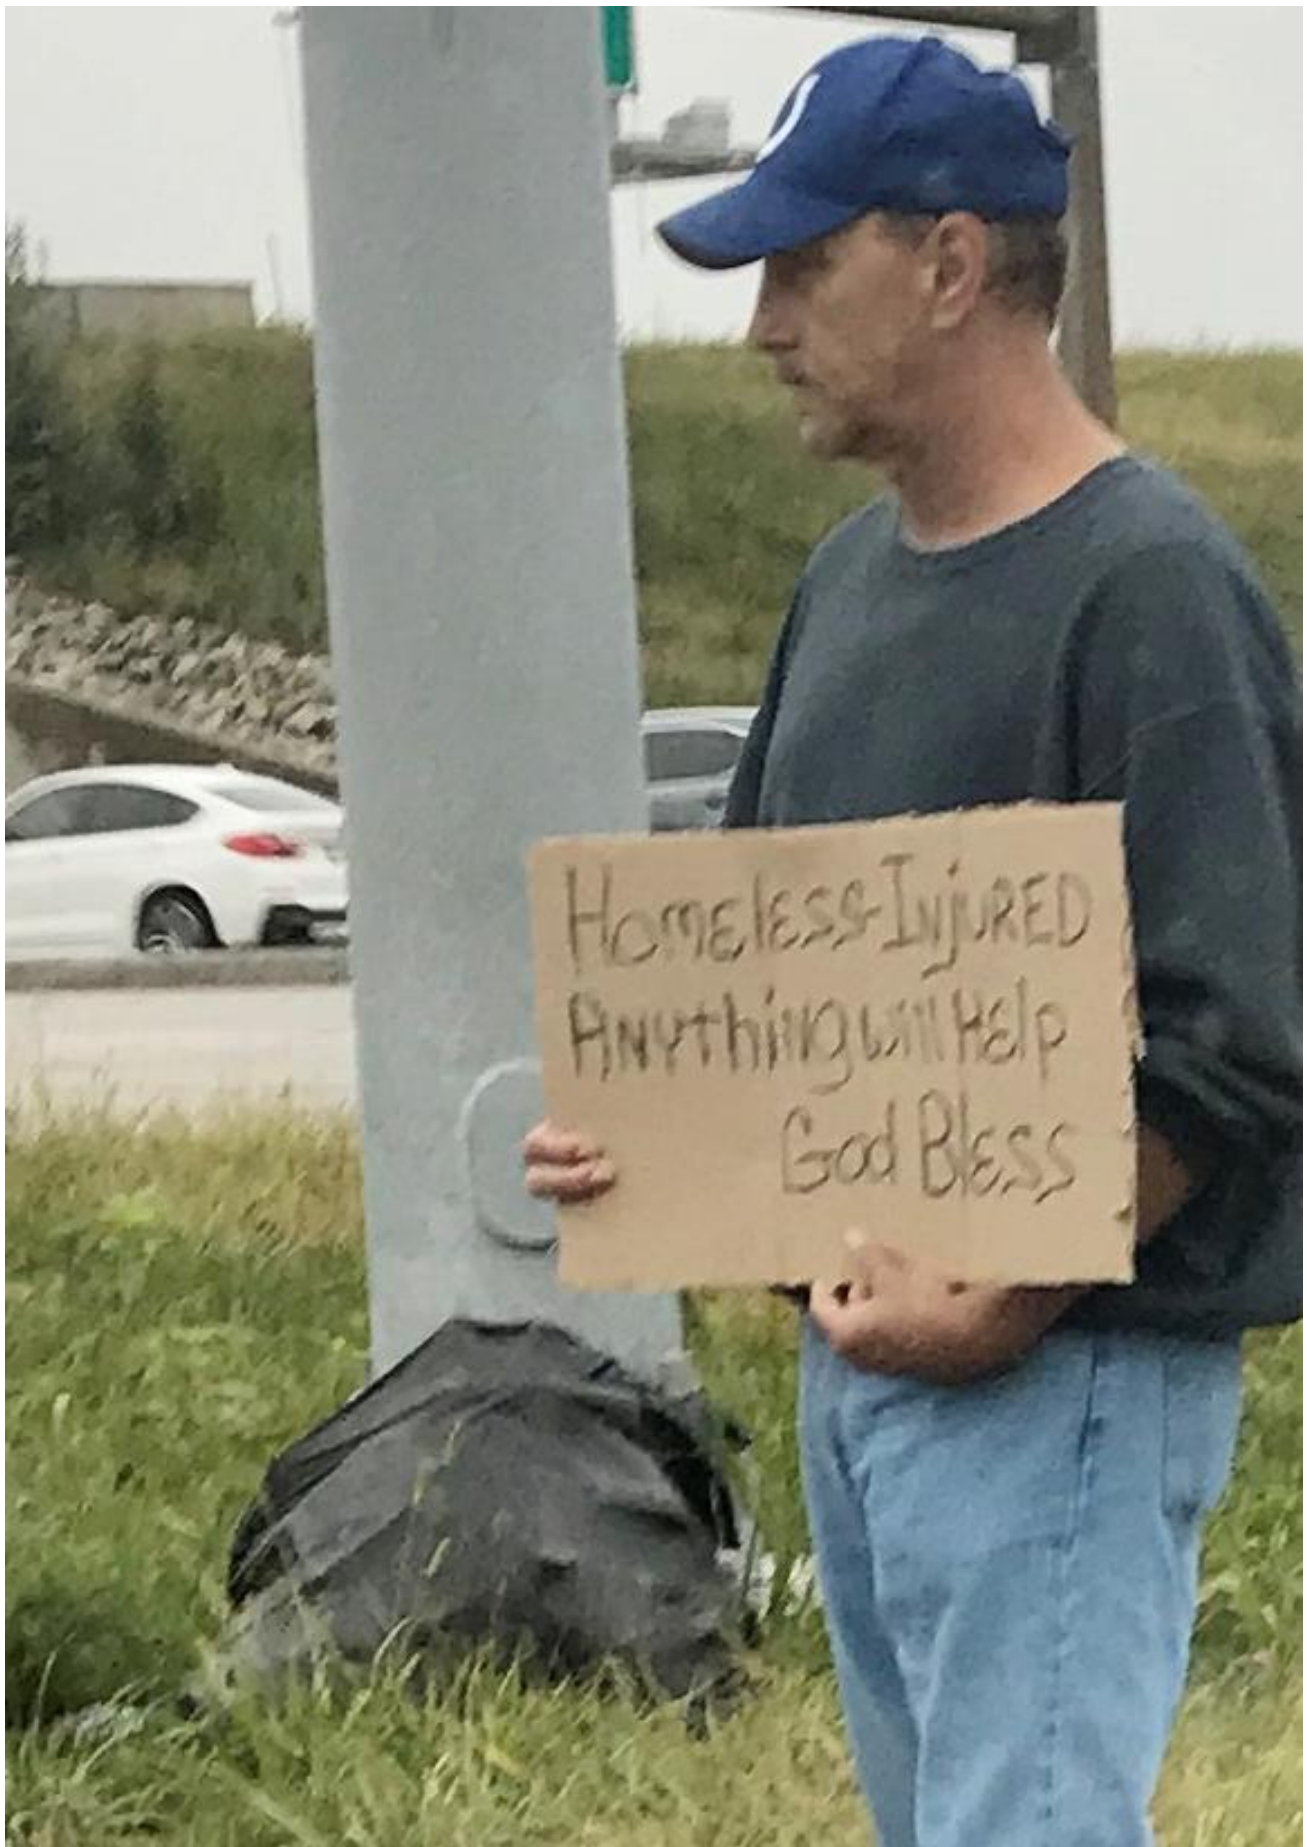 Homeless-Injured
Anything will Help
God Bless